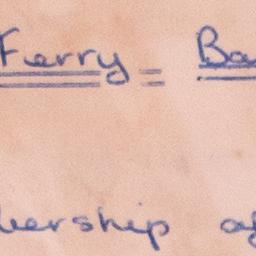 Ferry = Ba
ership of